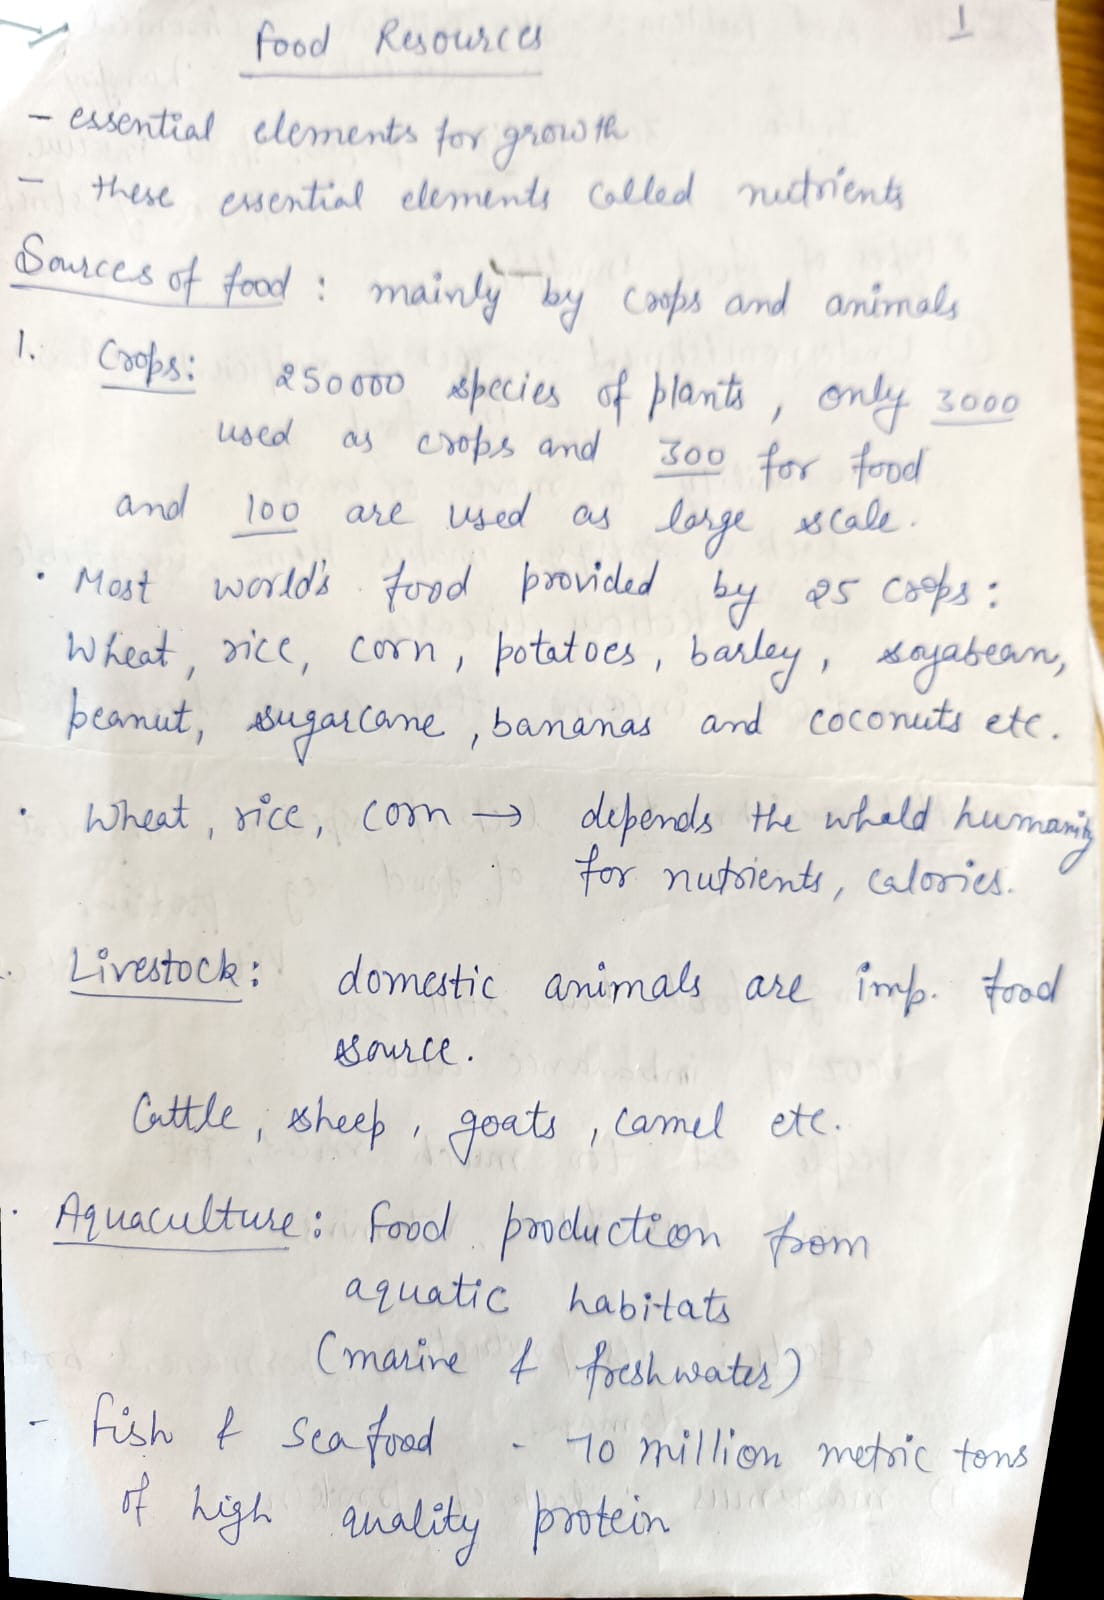 1
Food Resources
- essential elements for growth
- these essential elements called nutrients
Sources of food : mainly by crops and animals
1. Crops: 250000 species of plants, only 3000
used as crops and 300 for food
and 100 are used as large scale.
• Most world's food provided by 25 crops:
Wheat, rice, corn, potatoes, barley, soyabean,
peanut, sugarcane, bananas and coconuts etc.
• Wheat, rice, corn → depends the whold humanity
for nutrients, calories.
. Livestock: domestic animals are imp. food
source.
Cattle, sheep, goats, camel etc.
. Aquaculture: food production from
aquatic habitats
(marine & freshwater)
- fish & Sea food - 70 million metric tons
of high quality protein